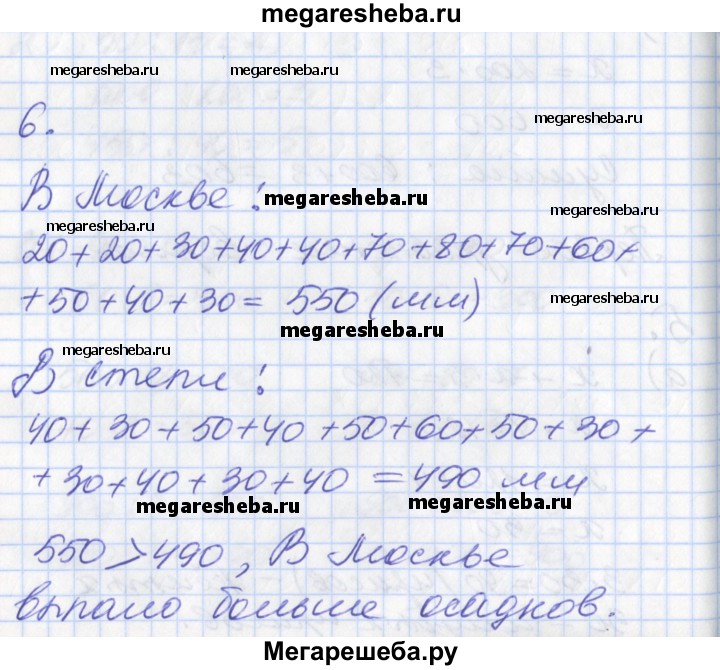 megaresheba.ru
megaresheba.ru megaresheba.ru
megaresheba.ru
6.
В Москве: megaresheba.ru
megaresheba.ru
megaresheba.ru
20+20+30+40+40+70+80+70+60+
+50+40+30= 550 (мм)
megaresheba.ru
megaresheba.ru
megaresheba.ru
В степи:
40+30+50+40+50+60+50+30+
+30+40+30+40 =490 мм
megaresheba.ru megaresheba.ru
550>490, В Москве
выпало больше осадков.
Мегарешеба.ру